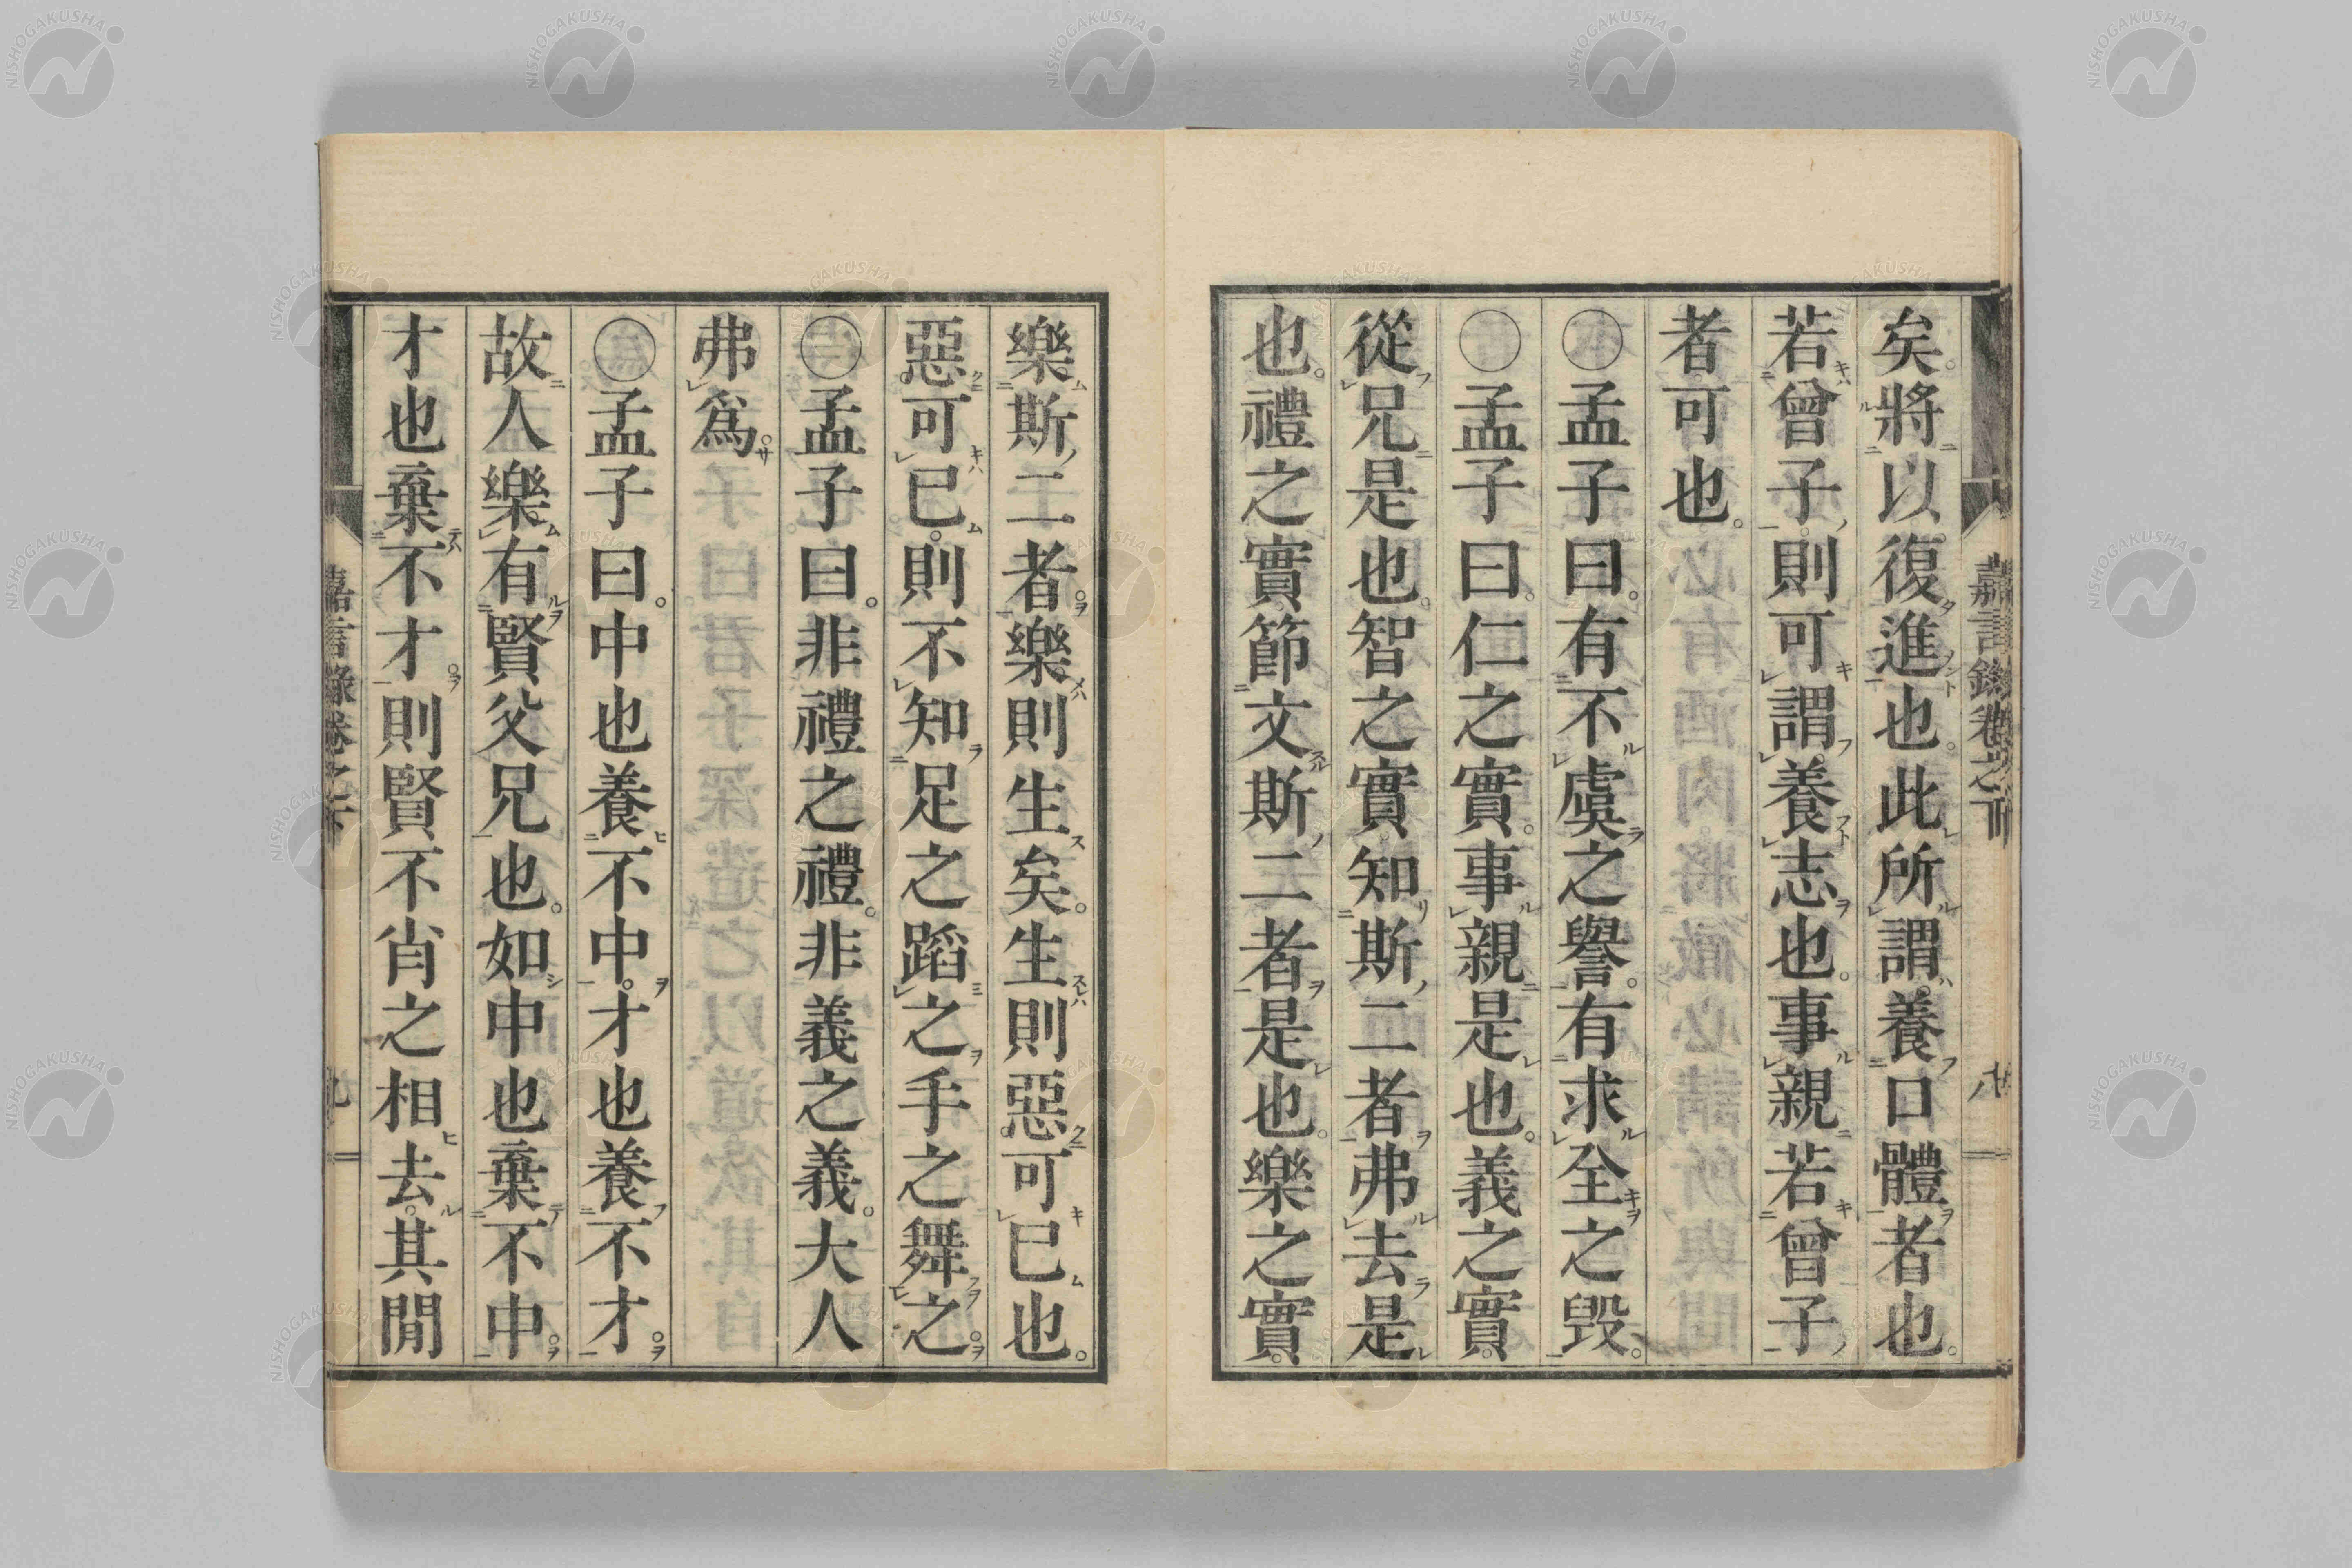 矣。將以復進也。此所謂養口體者也。
若曾子。則可謂養志也。事親若曾子
者可也。
○孟子曰。有不虞之譽。有求全之毀。
○孟子曰。仁之實。事親是也。義之實。
從兄是也。智之實。知斯二者弗去是
也。禮之實。節文斯二者是也。樂之實。
樂斯二者。樂則生矣。生則惡可已也。
惡可已。則不知足之蹈之手之舞之。
○孟子曰。非禮之禮。非義之義。大人
弗爲。
○孟子曰。中也養不中。才也養不才。
故人樂有賢父兄也。如中也棄不中。
才也棄不才。則賢不肖之相去。其閒
嘉言錄卷之下
NISHOGAKUSHA